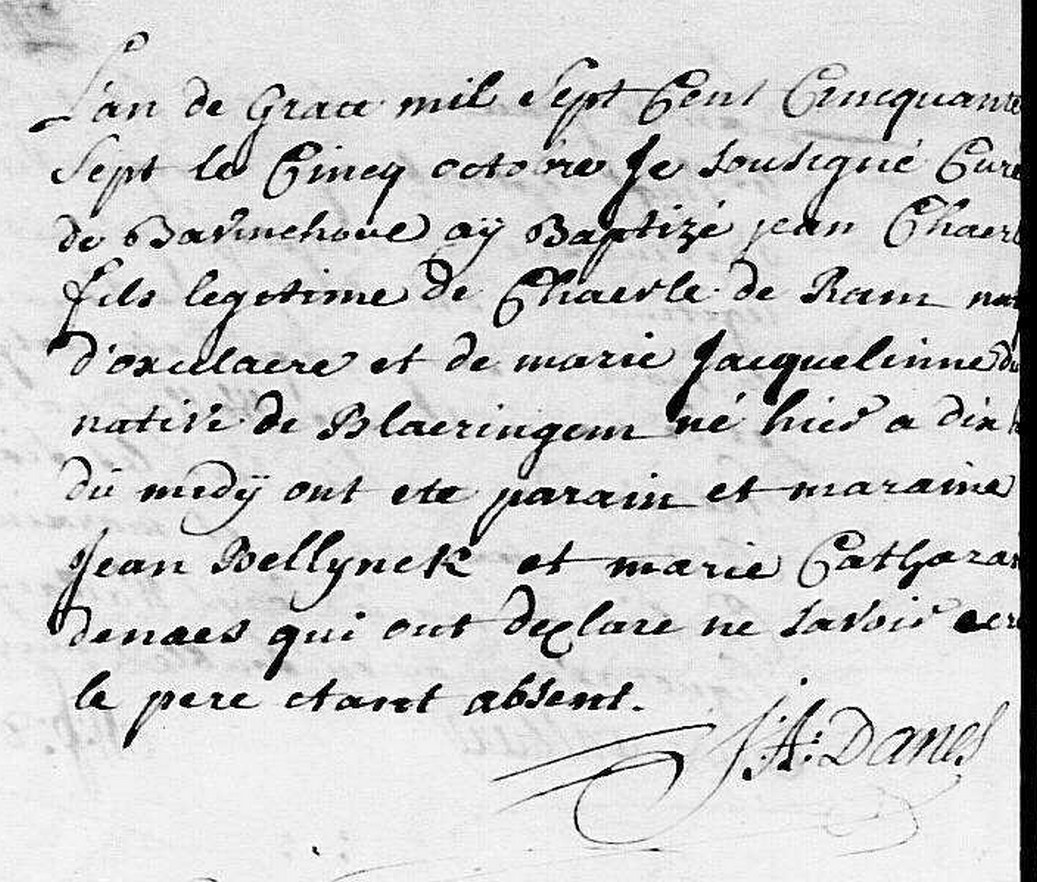 L'an de Grace mil Sept Cent Cincquante
Sept le Cincq octobre Je sousigné Curé
de Bavinchove aÿ Baptizé jean Chaerl
fils legitime de Chaerle de Ram nat
d'oxelaere et de marie Jacquelinne du
native de Blaeringem né hier a dix
du medÿ ont ete parain et maraine
Jean Bellynck et marie Catharai
denaes qui ont declare ne savoir ecri
le pere etant absent.
J: A: Danes